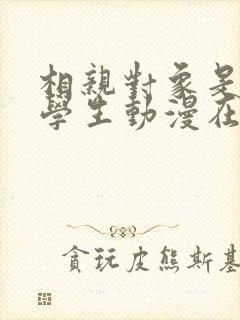 相親對象是
學生動漫在
貪玩皮熊斯基